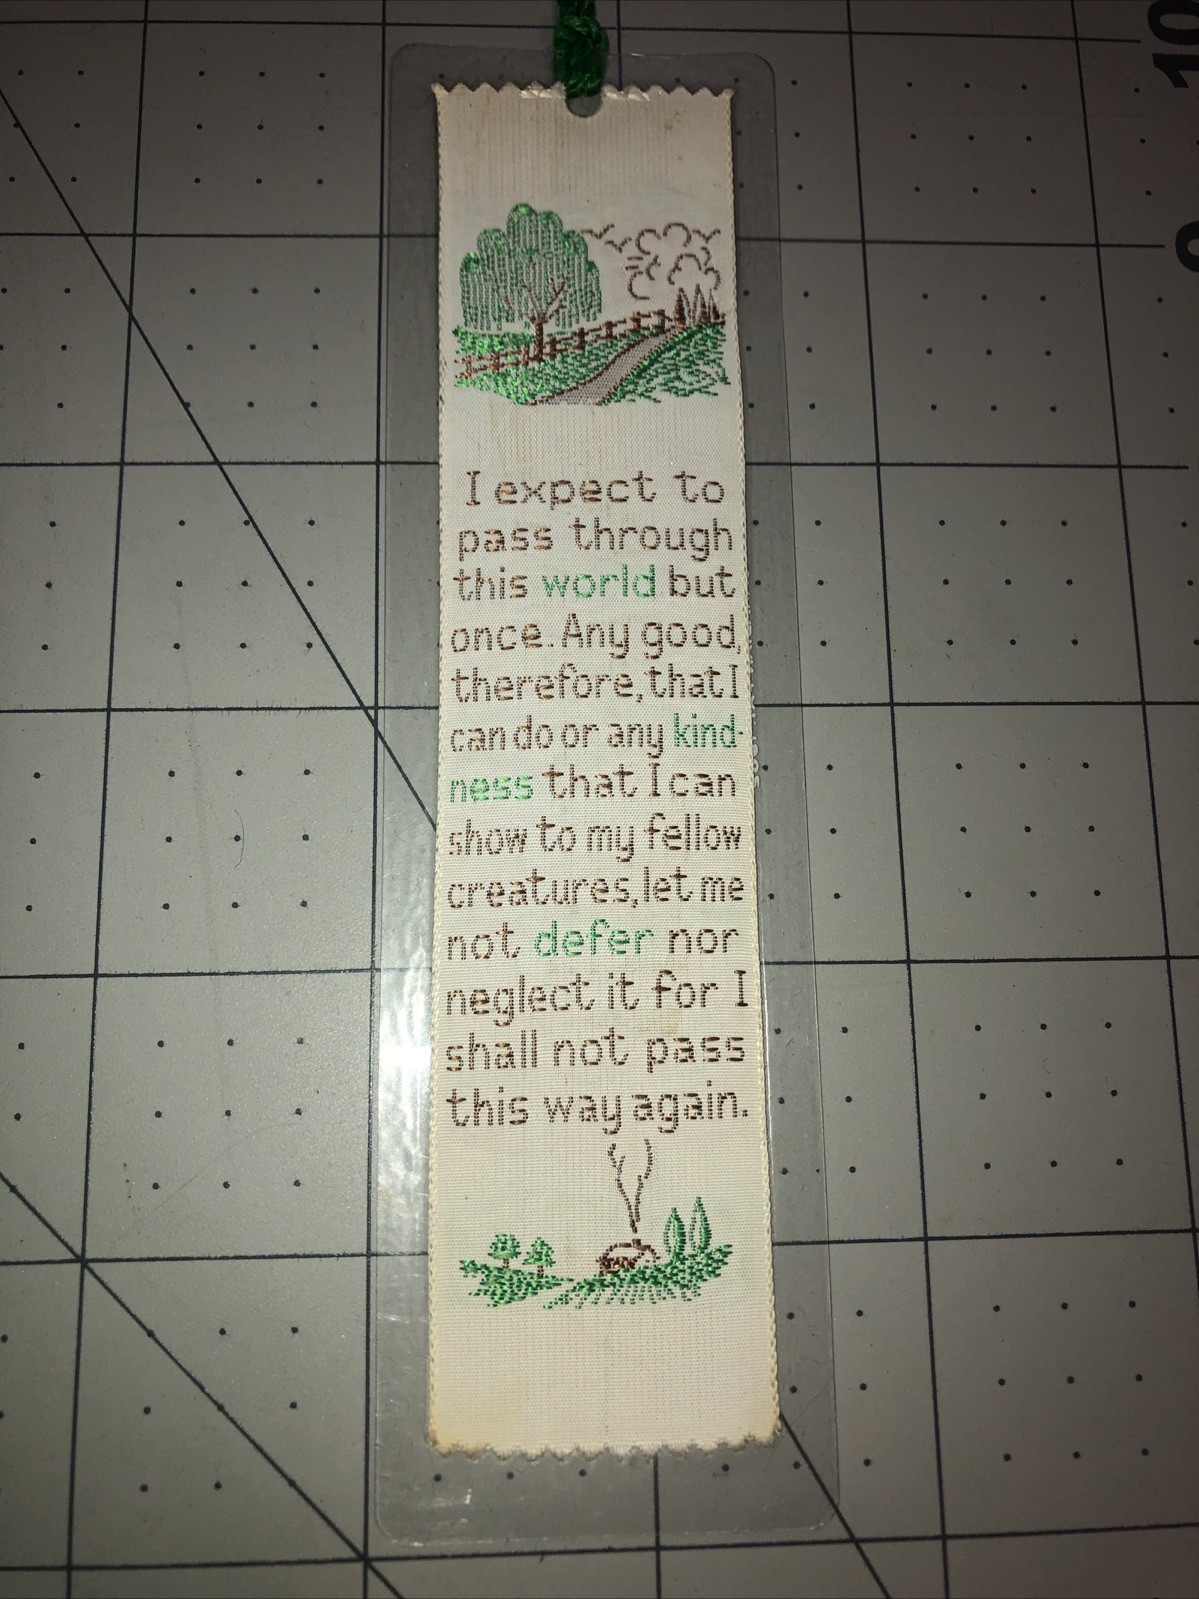 I expect to
pass through
this world but
once. Any good,
therefore, that I
can do or any kind-
ness that I can
show to my fellow
creatures, let me
not defer nor
neglect it for I
shall not pass
this way again.
10